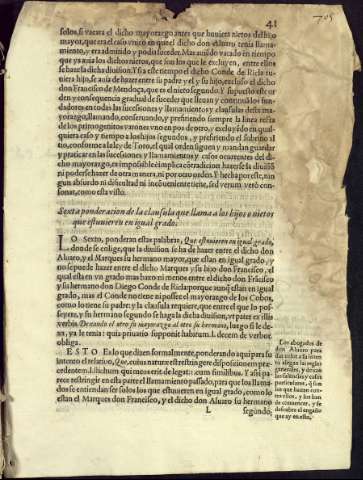 41
705
solos, si vacara el dicho mayorazgo antes que huviera nietos del hijo
mayor, que era el caso vnico en que el dicho don Aluaro, tenia llama-
miento, y era admitido y podia suceder. Mas auiendo vacado en tiempo
que ya auia los dichos nietos, que son los que le excluyen, entre ellos
se haze la dicha diuision. Y si a ese tiempo el dicho Conde de Ricla tu-
uiera hijo, se auia de hazer entre su padre y el y su hijo, excluso el dicho
don Francisco de Mendoça, que es el nieto segundo. Y supuesto este or-
den y consequencia gradual de suceder que lleuan y continuã los fun-
dadores en todas las sucessiones y llamamientos y clausulas deste ma-
yorazgo, llamando, conseruando, y prefiriendo siempre la linea recta
de los primogenitos varones vno en pos de otro, y excluyẽdo en qual-
quiera caso y tiempo a los hijos segundos, y prefiriendo el sobrino al
tio, conforme a la ley de Toro, el qual orden siguen y mandan guardar
y praticar en las sucessiones y llamamientos y casos ocurrentes del di-
cho mayorazgo, es imposible è implica cõtradicion hazerse la diuisiõ
ni poderse hazer de otra manera, ni por otro orden. Y hecha por este, nin-
gun absurdo ni dificultad ni inconueniente tiene, sed verum verò con-
sonat, como esta dicho.
Sexta ponderacion de la clausula que llama a los hijos o nietos
que estuuieren en igual grado.
LO Sexto, ponderan estas palabras, Que estuuieren en igual grado,
donde se colige, que la diuision se ha de hazer entre el dicho don
Aluaro, y el Marques su hermano mayor, que estan en igual grado, y
no se puede hazer entre el dicho Marques y su hijo don Francisco, el
qual esta en vn grado mas baxo ni menos entre el dicho don Frãcisco
y su hermano don Diego Conde de Ricla porque aunq̃ estan en igual
grado, mas el Conde no tiene ni possee el mayorazgo de los Cobos,
como lo tiene su padre: y la clausula requiere, que entre el que lo pos-
seyere, y su hermano segundo se haga la dicha diuision, vt patet ex illis
verbis Dexando el otro su mayorazgo al otro su hermano, luego si le de-
xa, ya le tenia: quia priuatio supponit habitum. l. decem de verbor.
obliga.
ESTO Es lo que dizen formalmente, ponderando aqui para su
intento el relatiuo, Que, cuius natura est restringere dispositionem præ-
cedentem l. illichum qui meos erit de legat: cum similibus. Y assi pa-
rece restringir en esta parte el llamamiento passado, para que los llama-
dos se entiendan ser solos los que estuuieren en igual grado, como le
estan el Marques don Francisco, y el dicho don Aluaro su hermano
L
segundo,
Los abogados de
don Aluaro para